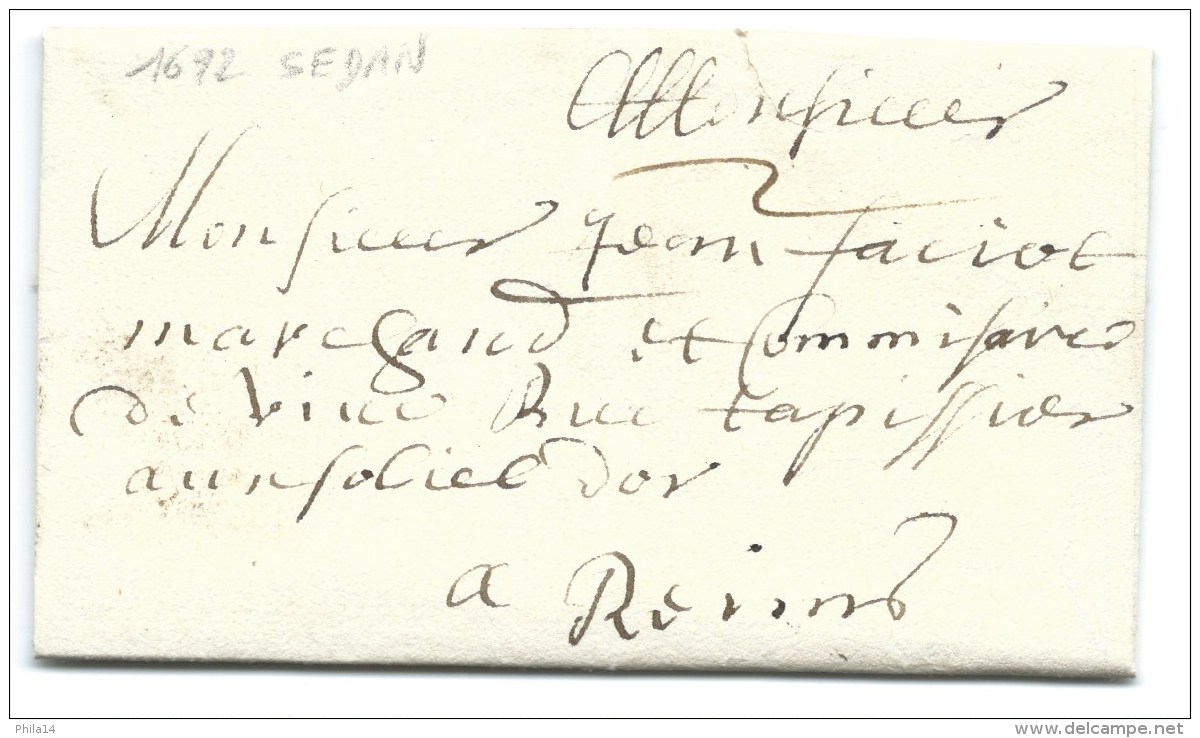 1692 SEDAN
A Monsieur
Monsieur Jean faciot
marchand et Commisaire
de vine Rue tapissier
au soliel dor
a Reims
Phila14
www.delcampe.net